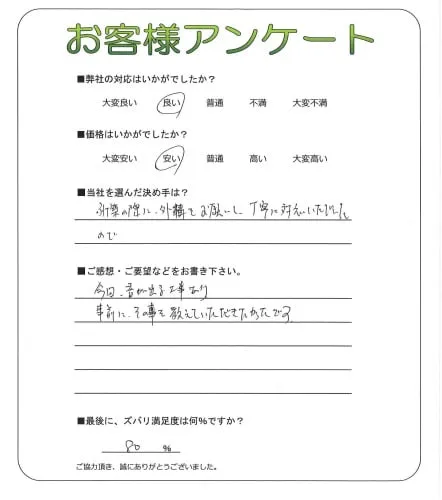 お客様アンケート
■弊社の対応はいかがでしたか？
大変良い 良い 普通 不満 大変不満
■価格はいかがでしたか？
大変安い 安い 普通 高い 大変高い
■当社を選んだ決め手は？
新築の際に、外構をお願いし、丁寧に対応いただいた
ので
■ご感想・ご要望などをお書き下さい。
今回、音が出る工事あり
事前に、その事を教えていただきたかったです
■最後に、ズバリ満足度は何％ですか？
80 %
ご協力頂き、誠にありがとうございました。